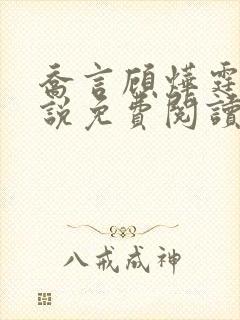 喬言顧燁霆
說免費閱讀
八戒成神